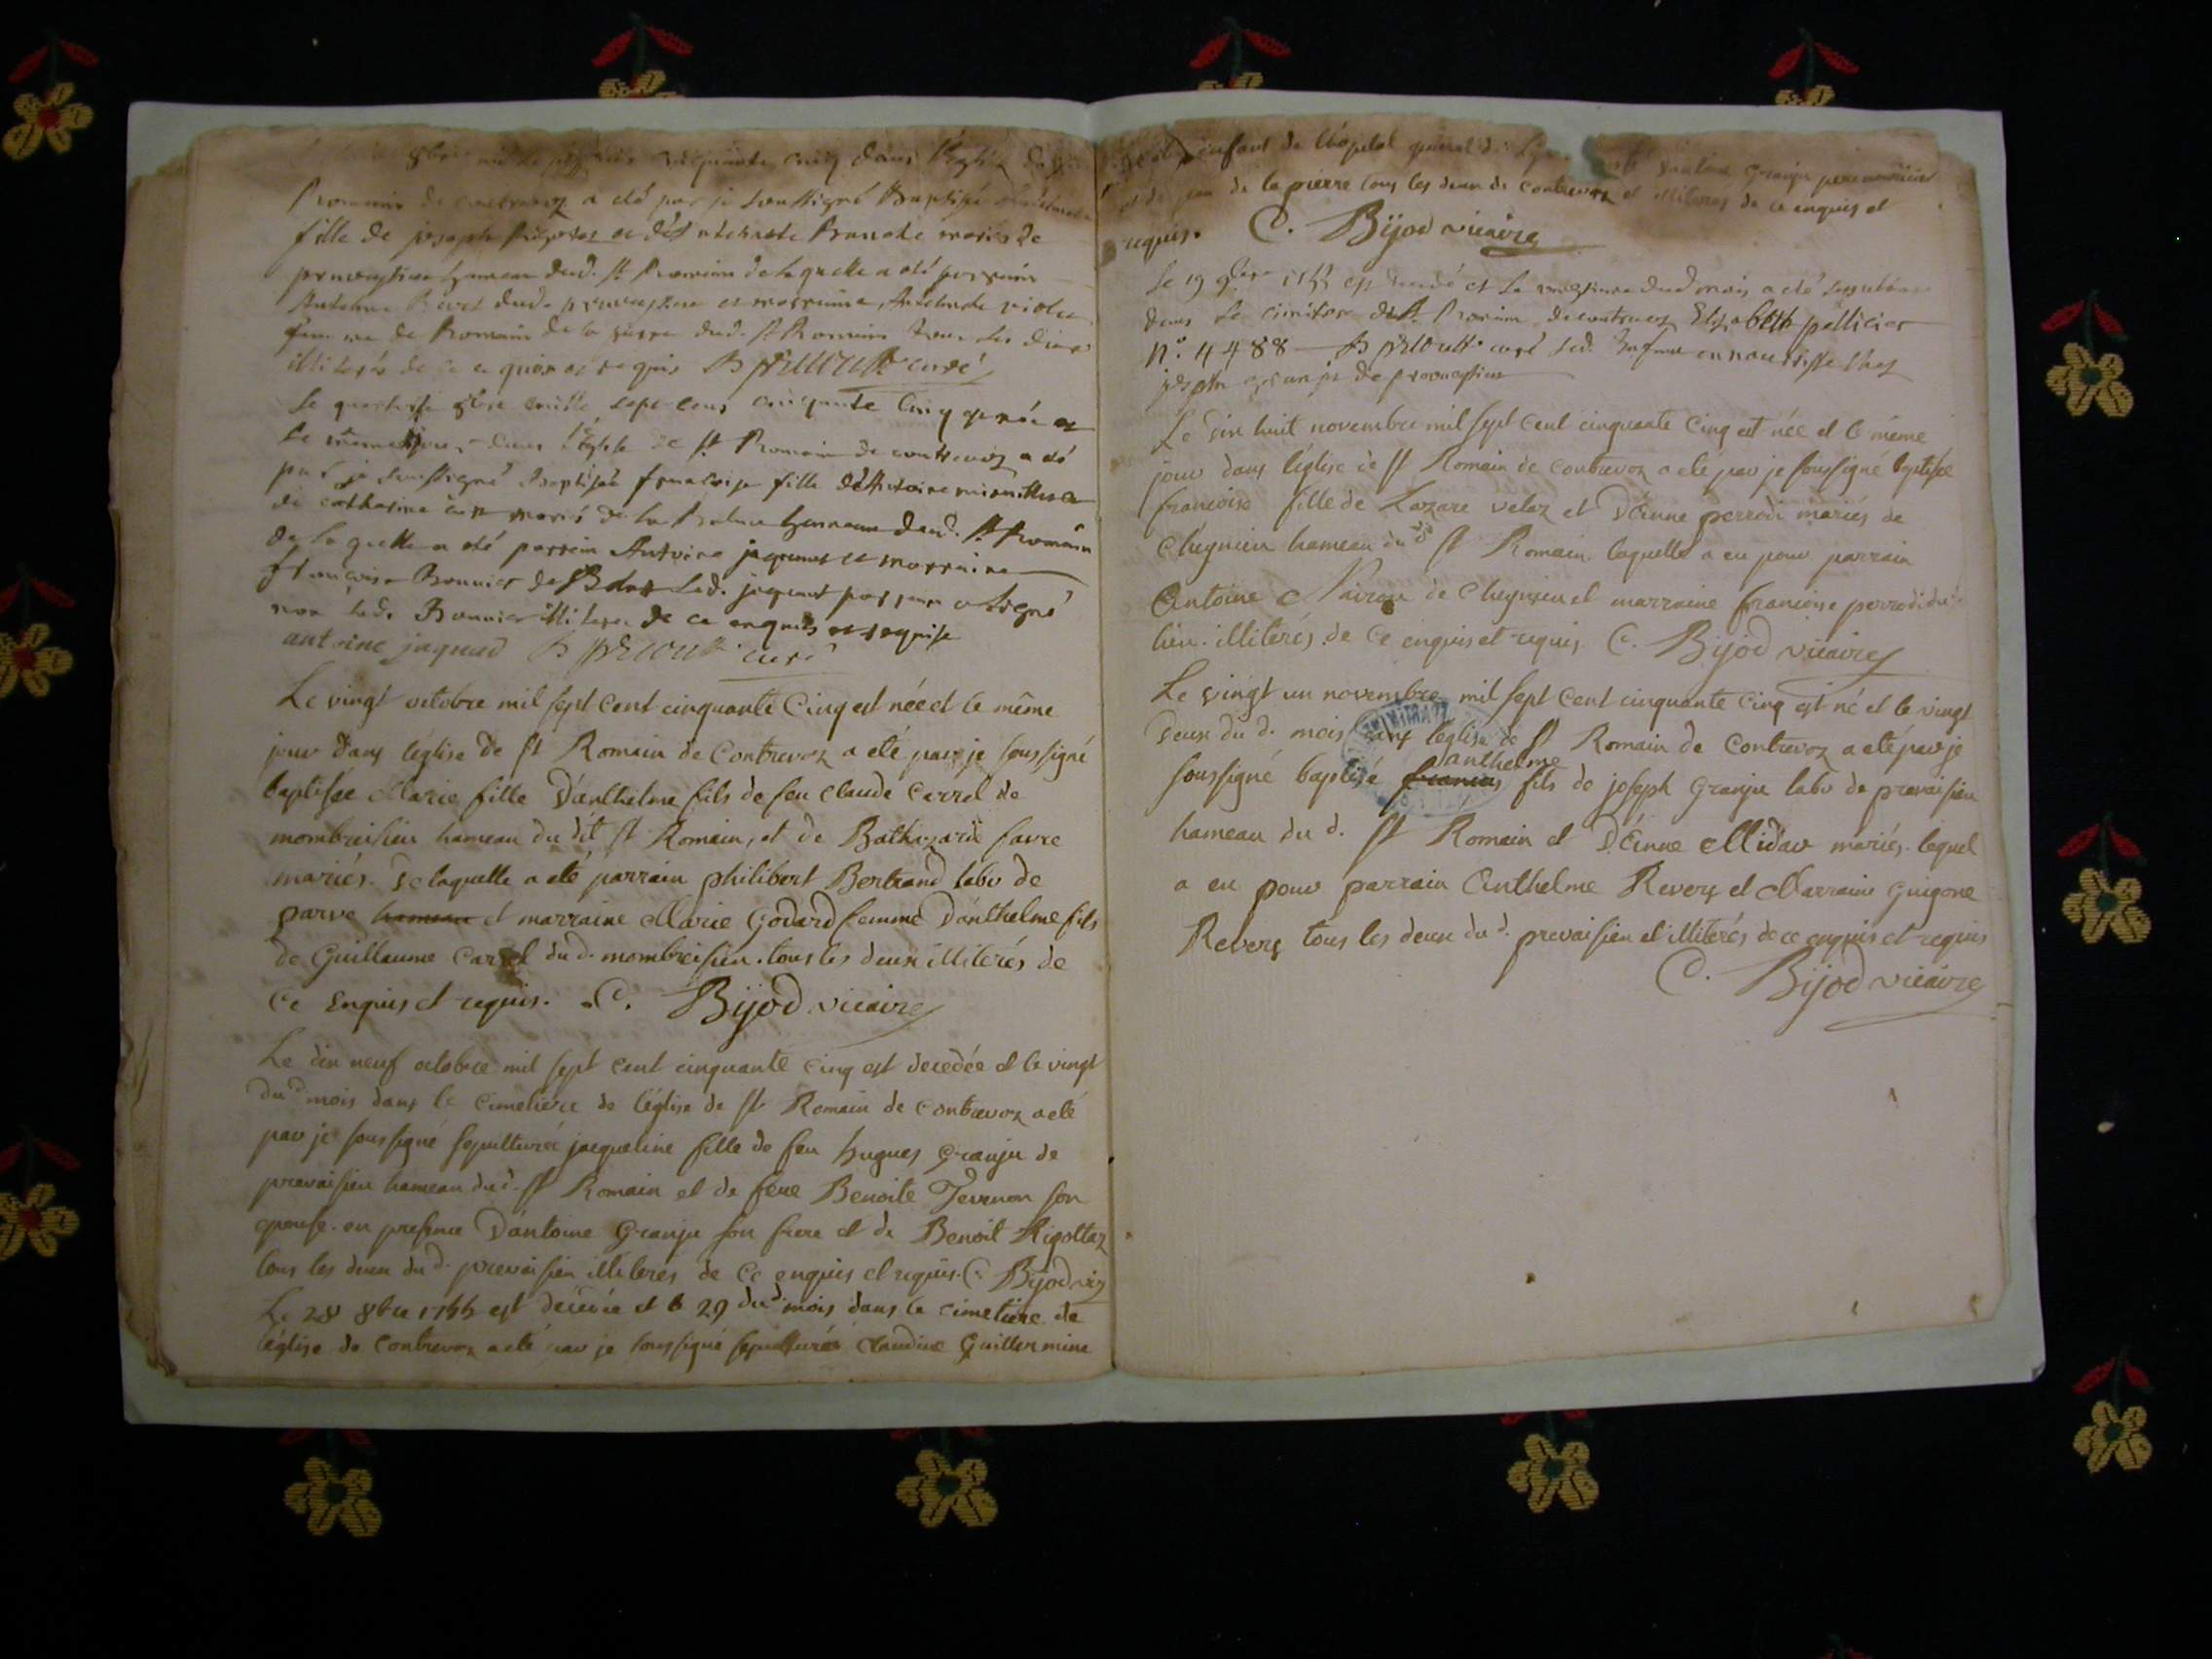 8bre cinquante cinq dans l'église de
Romain de contrevoz a été par je soussigné Baptisé
fille de joseph et mariés de
hameau dud. St Romain de laquelle a été parrain
Antoine dud. et marraine, Anthelmette
femme de Romain de la pierre dud. St Romain tous les deux
illiterés de ce enquis et requis curé
Le quatorse 8bre mille sept cens cinquante cinq est née et
le même jour dans l'église de St Romain de contrevoz a été
par je soussigné Baptisée francoise fille d'Antoine et
de catherine mariés de la hameau dud. St Romain
de laquelle a été parrain Antoine jaquand et marraine
francoise Bonnier de led. jaquand parrain a signé
non lad. Bonnier illiterée de ce enquis et requise
antoine jaquand curé
Le vingt octobre mil sept cent cinquante cinq est née et le même
jour dans l'église de St Romain de Contrevoz a eté par je soussigné
baptisée Marie fille d'anthelme fils de feu claude Carrel de
mombreisieu hameau du dit St Romain, et de Balthazarde favre
mariés. de laquelle a eté parrain philibert Bertrand labr de
parve hameau et marraine Marie Godard femme d'anthelme fils
de Guillaume Carrel du d. mombreisieu. tous les deux illiterés de
ce enquis et requis. C. Bijod vicaire
Le dix neuf octobre mil sept cent cinquante cinq est decedée et le vingt
du d. mois dans le cimetiere de l'église de St Romain de contrevoz a eté
par je soussigné sepulturée jacqueline fille de feu hugues Granju de
prevaisieu hameau du d. St Romain et de feue Benoite Tevenon son
epouse. en presence d'antoine Granju son frere et de Benoit Rigottaz
tous les deux du d. prevaisieu illiteres de ce enquis et requis. C. Bijod vic
Le 28 8bre 1755 est decedée et le 29 du d. mois dans le cimetiere de
l'église de Contrevoz a eté par je soussigné sepulturée claudine Guillermine
enfant de l'hopital general de Granju pere nourricier
et de de la pierre tous les deux de contrevoz et illiterés de ce enquis et
requis. C. Bijod vicaire
Le 19 9bre 1755 est decedé et le dud. mois a eté sepulturée
dans le cimitere de St Romain de contrevoz Elizabeth pellicier
n.° 4488 curé lad. Enfant en nourrisse chez
joseph granju de
Le dix huit novembre mil sept cent cinquante cinq est née et le même
jour dans l'église de St Romain de Contrevoz a eté par je soussigné baptisée
francoise fille de Lazare velaz et d'Anne perrodi mariés de
cheynieu hameau du d. St Romain laquelle a eu pour parrain
Antoine de cheynieu et marraine francoise perrodi du d.
lieu. illiterés de ce enquis et requis. C. Bijod vicaire
Le vingt un novembre mil sept cent cinquante cinq est né et le vingt
deux du d. mois dans l'église de St Romain de Contrevoz a eté par je
anthelme
soussigné baptisé francois fils de joseph Granju labr de prevaisieu
hameau du d. St Romain et d'Anne Midav mariés. lequel
a eu pour parrain Anthelme Revers et Marraine Guigone
Revers tous les deux du d. prevaisieu et illiterés de ce enquis et requis
C. Bijod vicaire